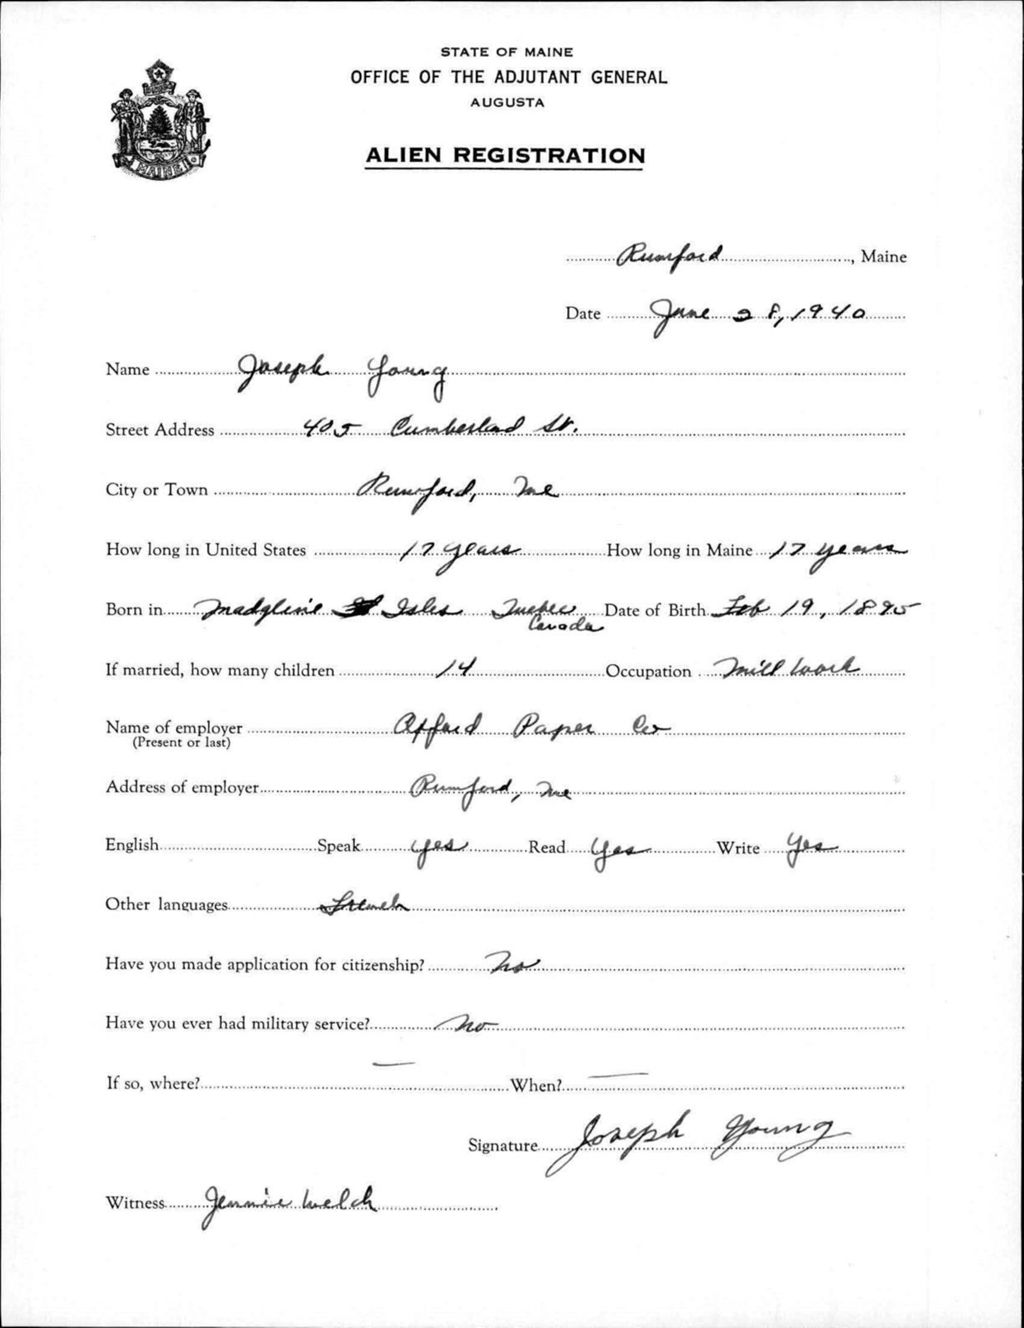 STATE OF MAINE
OFFICE OF THE ADJUTANT GENERAL
AUGUSTA
ALIEN REGISTRATION
MAINE
Rumford, Maine
Date June 28, 1940
Name Joseph Young
Street Address 405 Cumberland St.
City or Town Rumford, Me
How long in United States 17 years How long in Maine 17 years
Born in Madgline Isles Quebec Canada Date of Birth Feb 19, 1895
If married, how many children 14 Occupation Mill Work
Name of employer Oxford Paper Co
(Present or last)
Address of employer Rumford, Me
English Speak yes Read Yes Write Yes
Other languages French
Have you made application for citizenship? No
Have you ever had military service? No
If so, where? — When? —
Signature Joseph Young
Witness Jennie Welch